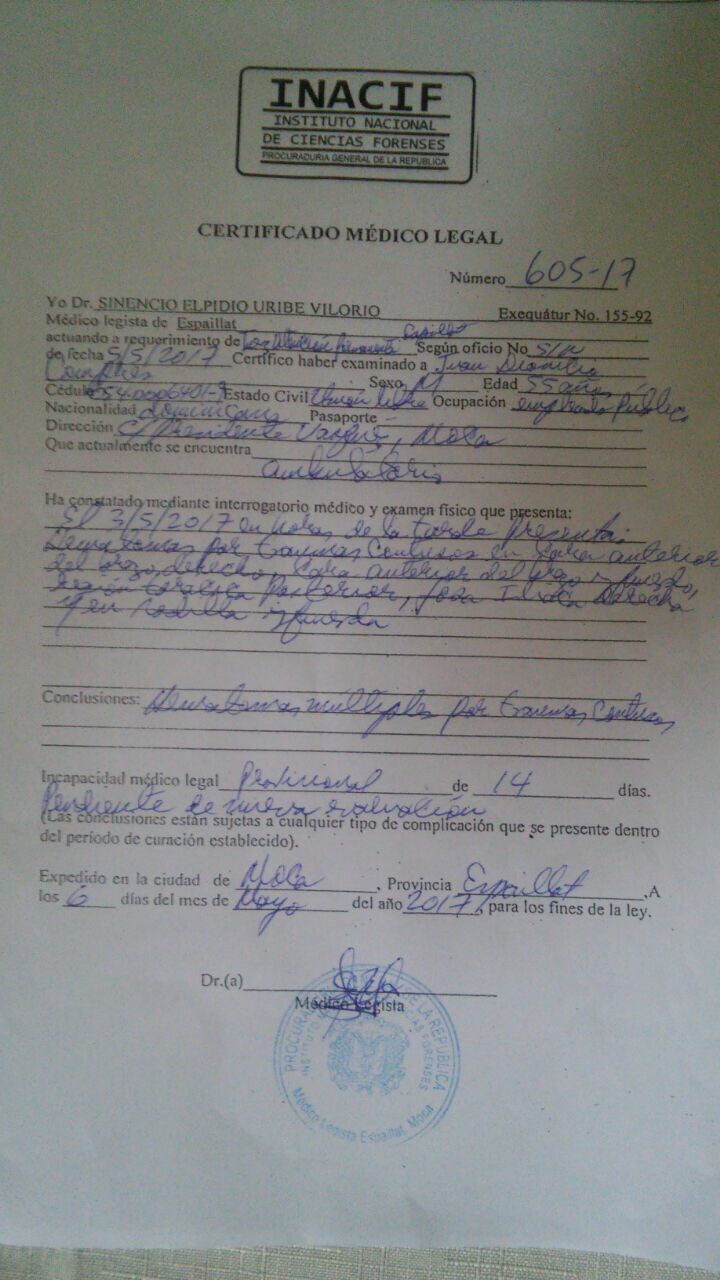 INACIF
INSTITUTO NACIONAL
DE CIENCIAS FORENSES
PROCURADURIA GENERAL DE LA REPUBLICA
CERTIFICADO MÉDICO LEGAL
Número 605-17
Yo Dr. SINENCIO ELPIDIO URIBE VILORIO Exequátur No. 155-92
Médico legista de Espaillat
actuando a requerimiento de Espaillat Según oficio No S/N
de fecha 5/5/2017 Certifico haber examinado a Juan Dionicio
Comprés
Cédula Estado Civil Unión libre Sexo M Edad 55 años
Ocupación empleado Público
Nacionalidad dominicana Pasaporte -
Dirección C/ Presidente Vasquez, Moca
Que actualmente se encuentra
ambulatorio
Ha constatado mediante interrogatorio médico y examen físico que presenta:
El 3/5/2017 en horas de la tarde Presenta
Hematomas por traumas Contusos en Cara anterior
del brazo derecho, Cara anterior del brazo izquierdo,
región toráxica Posterior, fosa Iliaca Derecha
y en rodilla izquierda
Conclusiones: Hematomas múltiples por traumas Contusos
Incapacidad médico legal Provisional de 14 días.
Pendiente de nueva evaluación
(Las conclusiones están sujetas a cualquier tipo de complicación que se presente dentro
del período de curación establecido).
Expedido en la ciudad de Moca, Provincia Espaillat, A
los 6 días del mes de Mayo del año 2017, para los fines de la ley.
Dr.(a)
Médico Legista
PROCURADURIA GENERAL DE LA REPUBLICA
INSTITUTO NACIONAL DE CIENCIAS FORENSES
Médico Legista Espaillat, Moca